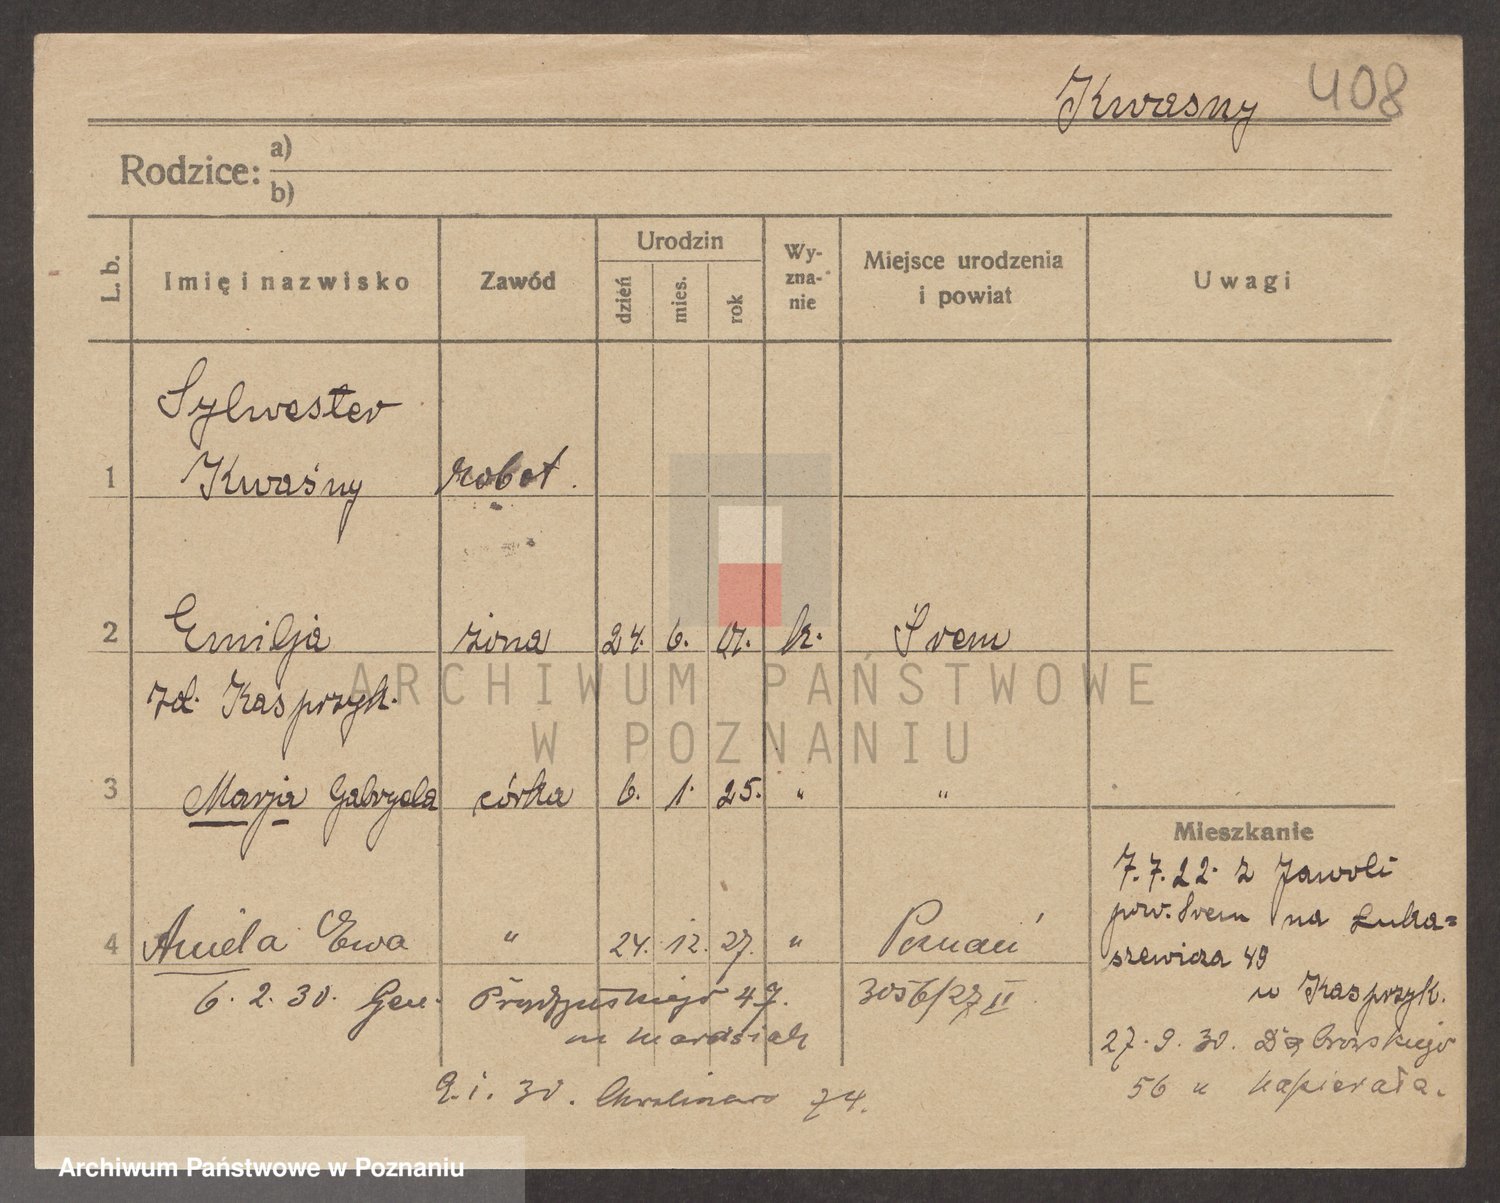 Kwasny 408
Rodzice: a)
b)
L. b.
Imię i nazwisko
Zawód
Urodzin
dzień
mies.
rok
Wy-
zna-
nie
Miejsce urodzenia
i powiat
Uwagi
Sylwester
1 Kwaśny robot.
2 Emilja żona 24. 6. 01. k. Śrem
zd. Kasprzyk.
3 Marja Gabryela córka 6. 1. 25. " "
4 Aniela Ewa " 24. 12. 27. " Poznań
6. 2. 30. Gen. Prądzyńskiego 47. 3056/27 II
Mieszkanie
7.7.22. z Jawoli
pow. Śrem na Łuka=
szewicza 49
u Kasprzyk.
27. 9. 30. Dąbrowskiego
56 u Napierała.
9. 1. 30. 74.
ARCHIWUM PAŃSTWOWE
W POZNANIU
Archiwum Państwowe w Poznaniu